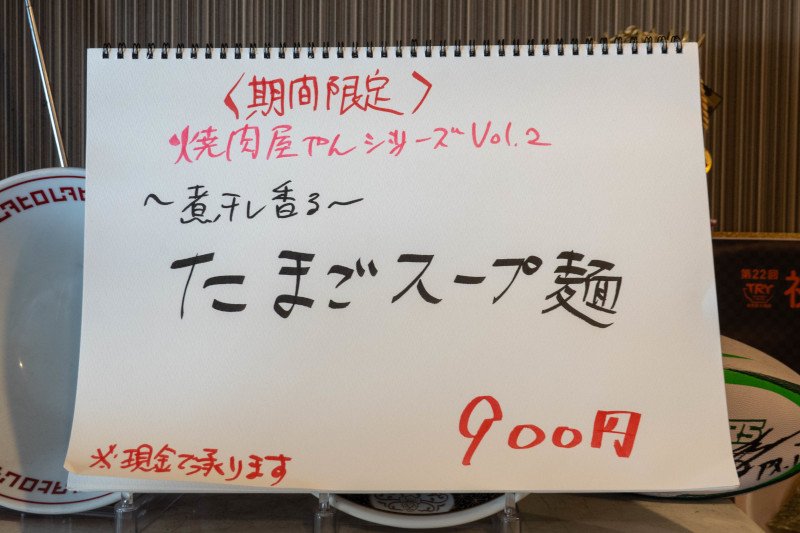 〈期間限定〉
焼肉屋やんシリーズVol.2
〜煮干し香る〜
たまごスープ麺
900円
※現金で承ります
第22回
TRY